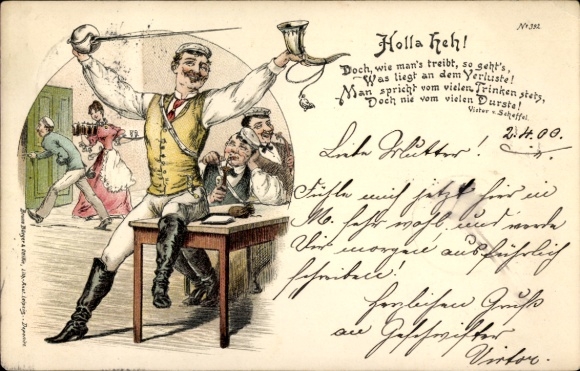 No 392
Holla heh!
Doch, wie man's treibt, so geht's,
Was liegt an dem Verluste!
Man spricht vom vielen Trinken stets,
Doch nie vom vielen Durste!
Victor v. Scheffel.
2.4.00.
Liebe Mutter!
Fühle mich jetzt hier in
M. sehr wohl und werde
Dir morgen ausführlich
schreiben!
Herzlichen Gruß
an Geschwister
Victor.
Bruno Bürger &
Lith. Anst. Leipzig